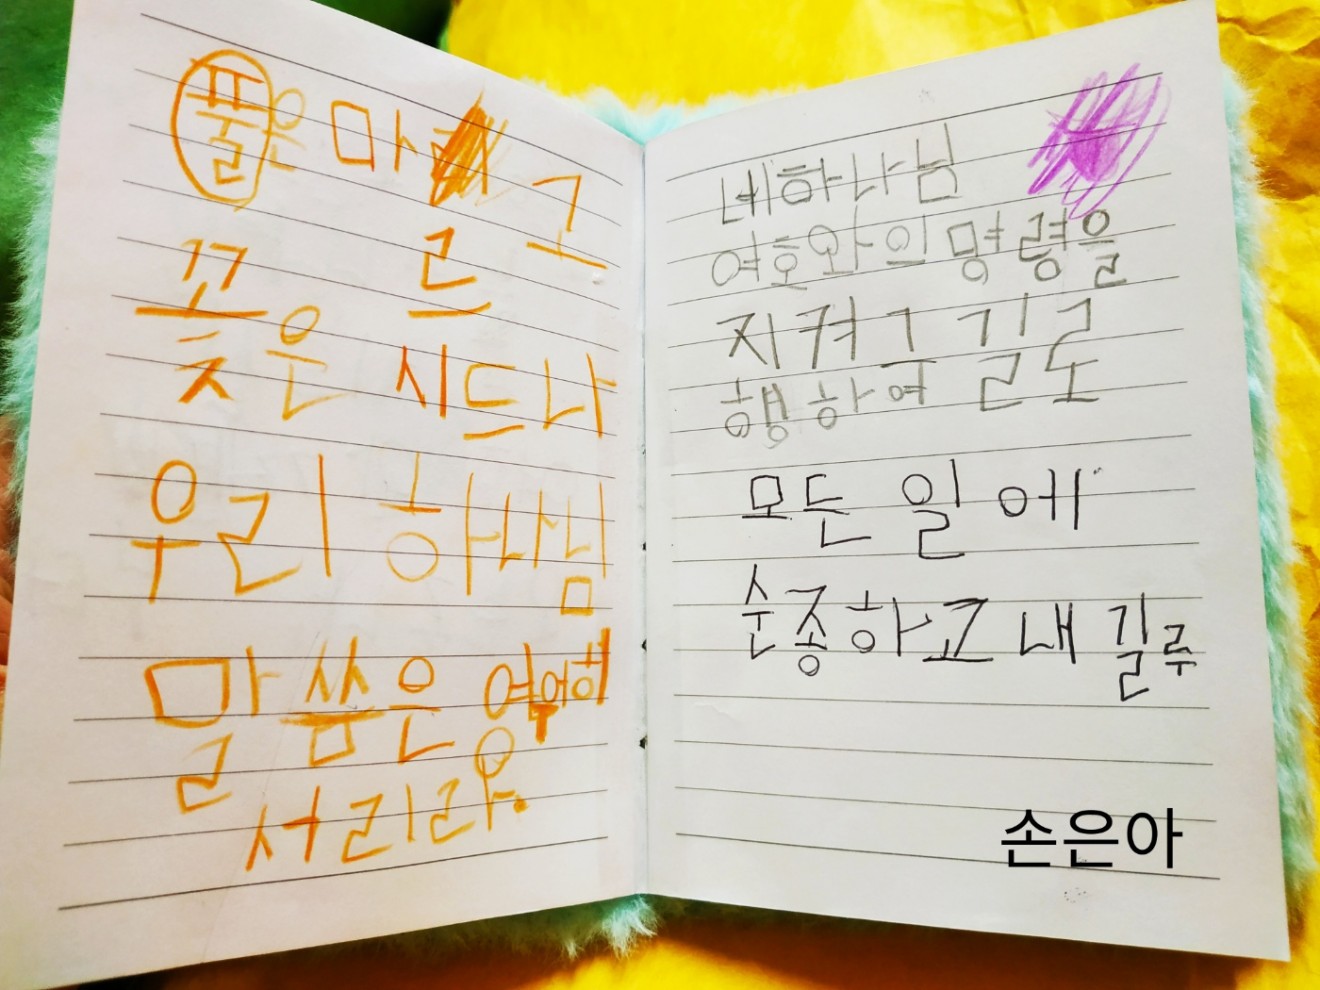 풀은 마르고
꽃은 시드나
우리 하나님
말씀은 영원히
서리라.
네 하나님
여호와의 명령을
지켜 그 길로
행하여
모든 일에
순종하고 내 길루
손은아